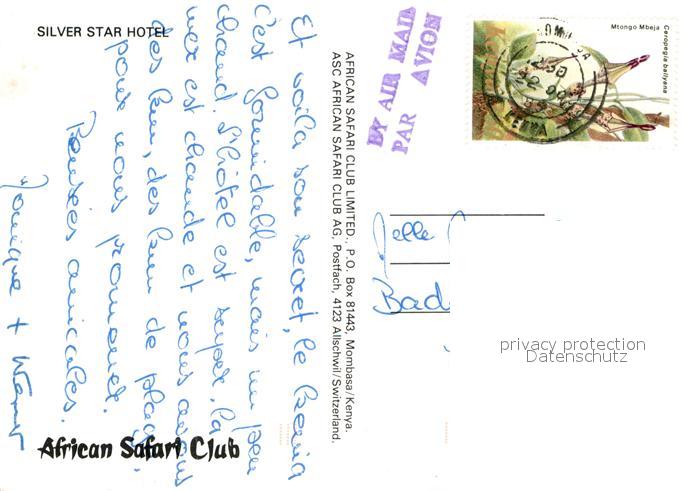 SILVER STAR HOTEL
Et voilà son secret, le Kenia
c'est formidable, mais un peu
chaud. L'hôtel est super, la
mer est chaude et nous avons
des km, des km de plage
pour nous promener.
Pensées amicales.
+ Werner
African Safari Club
AFRICAN SAFARI CLUB LIMITED., P.O. Box 81443, Mombasa/Kenya.
ASC AFRICAN SAFARI CLUB AG, Postfach, 4123 Allschwil/Switzerland.
BY AIR MAIL
PAR AVION
Mtongo Mbeja
Ceropegia ballyana
KENYA
Melle
Bad
privacy protection
Datenschutz